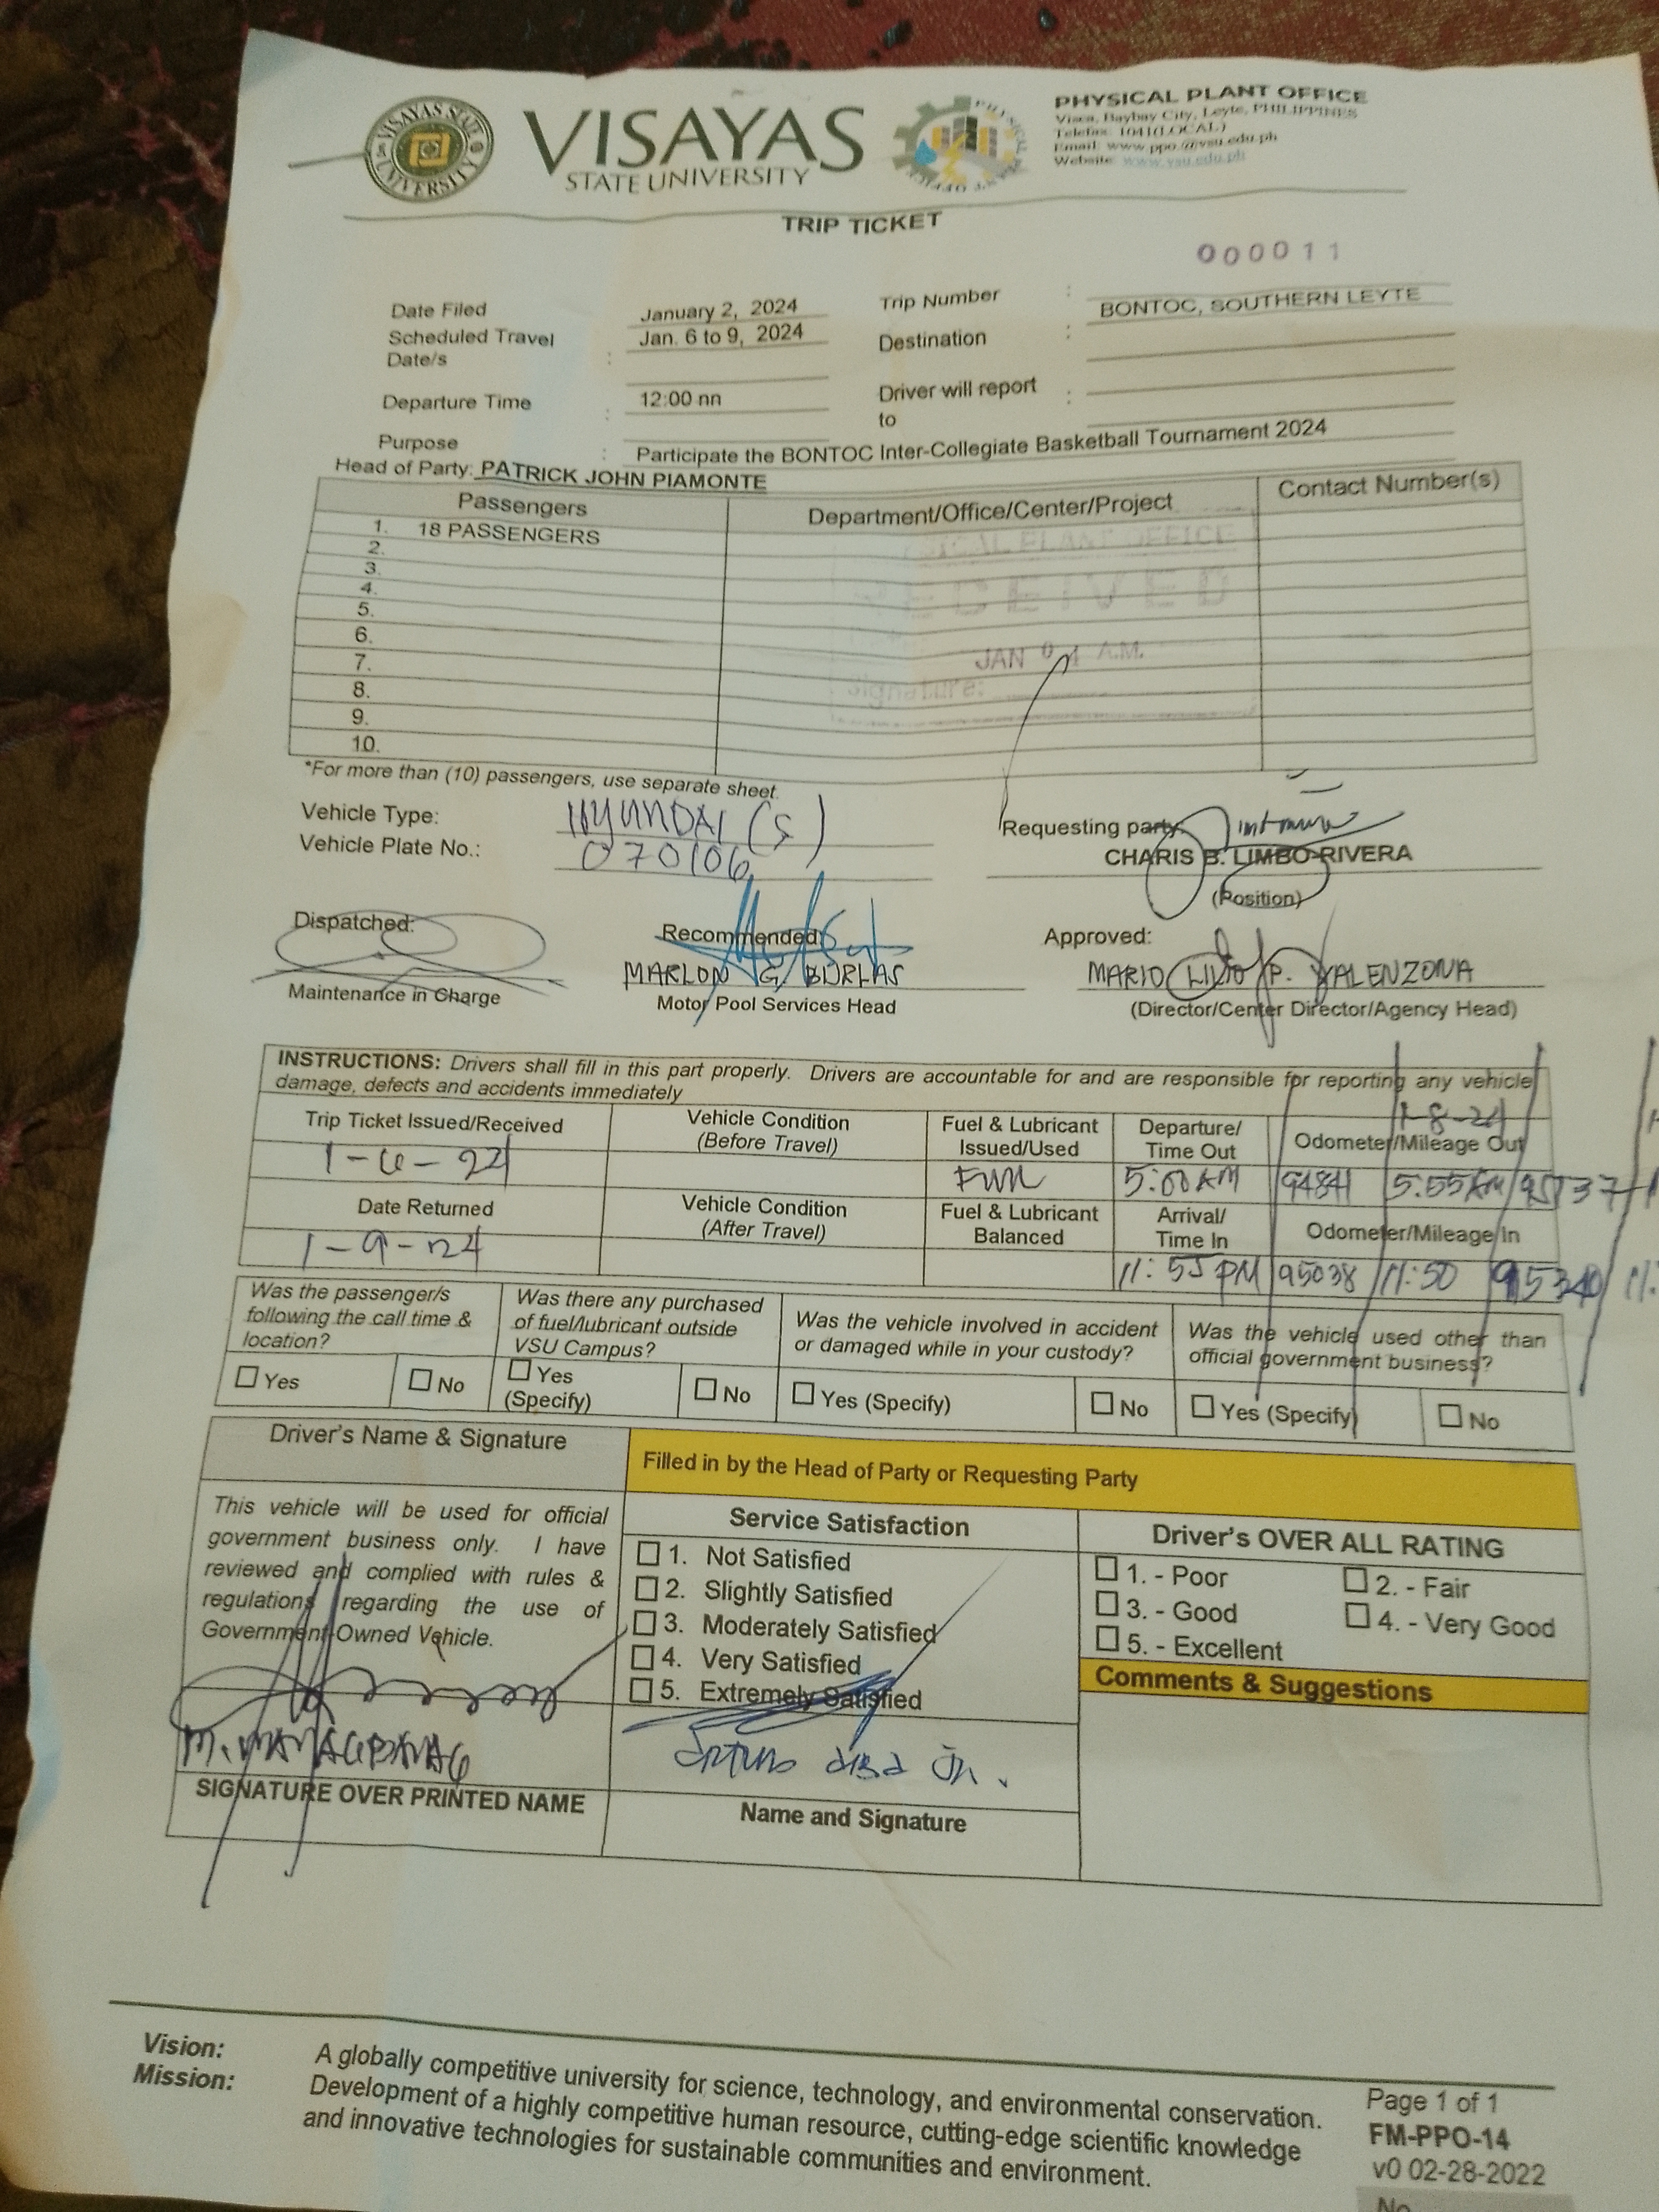 VISAYAS
STATE UNIVERSITY
VISAYAS STATE UNIVERSITY
PHYSICAL PLANT OFFICE
Visca, Baybay City, Leyte, PHILIPPINES
Telefax: 1041(LOCAL)
Email: www.ppo.@vsu.edu.ph
Website: www.vsu.edu.ph
TRIP TICKET
000011
Date Filed January 2, 2024 Trip Number :
BONTOC, SOUTHERN LEYTE
Scheduled Travel Date/s : Jan. 6 to 9, 2024 Destination :
Departure Time : 12:00 nn Driver will report to :
Purpose : Participate the BONTOC Inter-Collegiate Basketball Tournament 2024
Head of Party: PATRICK JOHN PIAMONTE
Passengers Department/Office/Center/Project Contact Number(s)
1. 18 PASSENGERS
2.
3.
4.
5.
6.
7.
8.
9.
10.
PLANT OFFICE
RECEIVED
JAN 04 A.M.
Signature:
*For more than (10) passengers, use separate sheet.
Vehicle Type: HYUNDAI (S)
Vehicle Plate No.: 070106
Requesting party:
CHARIS B. LIMBO-RIVERA
(Position)
Dispatched: Recommended: Approved:
MARLON G. BURLAS MARIO LILIO P. VALENZONA
Maintenance in Charge Motor Pool Services Head (Director/Center Director/Agency Head)
INSTRUCTIONS: Drivers shall fill in this part properly. Drivers are accountable for and are responsible for reporting any vehicle
damage, defects and accidents immediately
1-8-24
Trip Ticket Issued/Received Vehicle Condition (Before Travel) Fuel & Lubricant Issued/Used Departure/ Time Out Odometer/Mileage Out
1-6-24 Full 5:00 AM 94841 5:55 AM 95137
Date Returned Vehicle Condition (After Travel) Fuel & Lubricant Balanced Arrival/ Time In Odometer/Mileage In
1-9-24 11:55 PM 95038 11:50 95340 11:
Was the passenger/s following the call time & location? Was there any purchased of fuel/lubricant outside VSU Campus? Was the vehicle involved in accident or damaged while in your custody? Was the vehicle used other than official government business?
Yes No Yes (Specify) No Yes (Specify) No Yes (Specify) No
Driver's Name & Signature
Filled in by the Head of Party or Requesting Party
This vehicle will be used for official
government business only. I have
reviewed and complied with rules &
regulations regarding the use of
Government-Owned Vehicle.
M. MANAGBANAG
SIGNATURE OVER PRINTED NAME
Service Satisfaction
1. Not Satisfied
2. Slightly Satisfied
3. Moderately Satisfied
4. Very Satisfied
5. Extremely Satisfied
Jr.
Name and Signature
Driver's OVER ALL RATING
1. - Poor 2. - Fair
3. - Good 4. - Very Good
5. - Excellent
Comments & Suggestions
Vision: A globally competitive university for science, technology, and environmental conservation.
Mission: Development of a highly competitive human resource, cutting-edge scientific knowledge
and innovative technologies for sustainable communities and environment.
Page 1 of 1
FM-PPO-14
v0 02-28-2022
No.